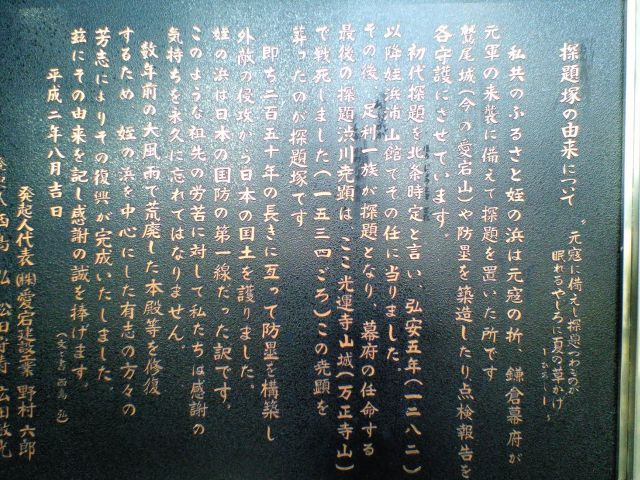 探題塚の由来について
元寇に備えし探題つわものが
眠れるやしろに百の草かげ
私共のふるさと姪の浜は元寇の折、鎌倉幕府が
元軍の来襲に備えて探題を置いた所です
鷲尾城(今の愛宕山)や防塁を築造したり点検報告を
各守護にさせています。
初代探題を北条時定と言い、弘安五年(一二八二)
以降姪浜浦山館でその任に当りました。
その後、足利一族が探題となり、幕府の任命する
最後の探題渋川尭顕は、ここ光運寺山城(万正寺山)
で戦死しました(一五三四ごろ)この尭顕を
葬ったのが探題塚です
即ち二百五十年の長きに亙って防塁を構築し
外敵の侵攻から日本の国土を護りました。
姪の浜は日本の国防の第一線だった訳です。
このような祖先の労苦に対して私たちは感謝の
気持ちを永久に忘れてはなりません。
数年前の大風雨で荒廃した本殿等を修復
するため 姪の浜を中心にした有志の方々の
芳志によりその復興が完成いたしました。
茲にその由来を記し感謝の誠を捧げます。
平成二年八月吉日
発起人代表 (株)愛宕建設業 野村六郎